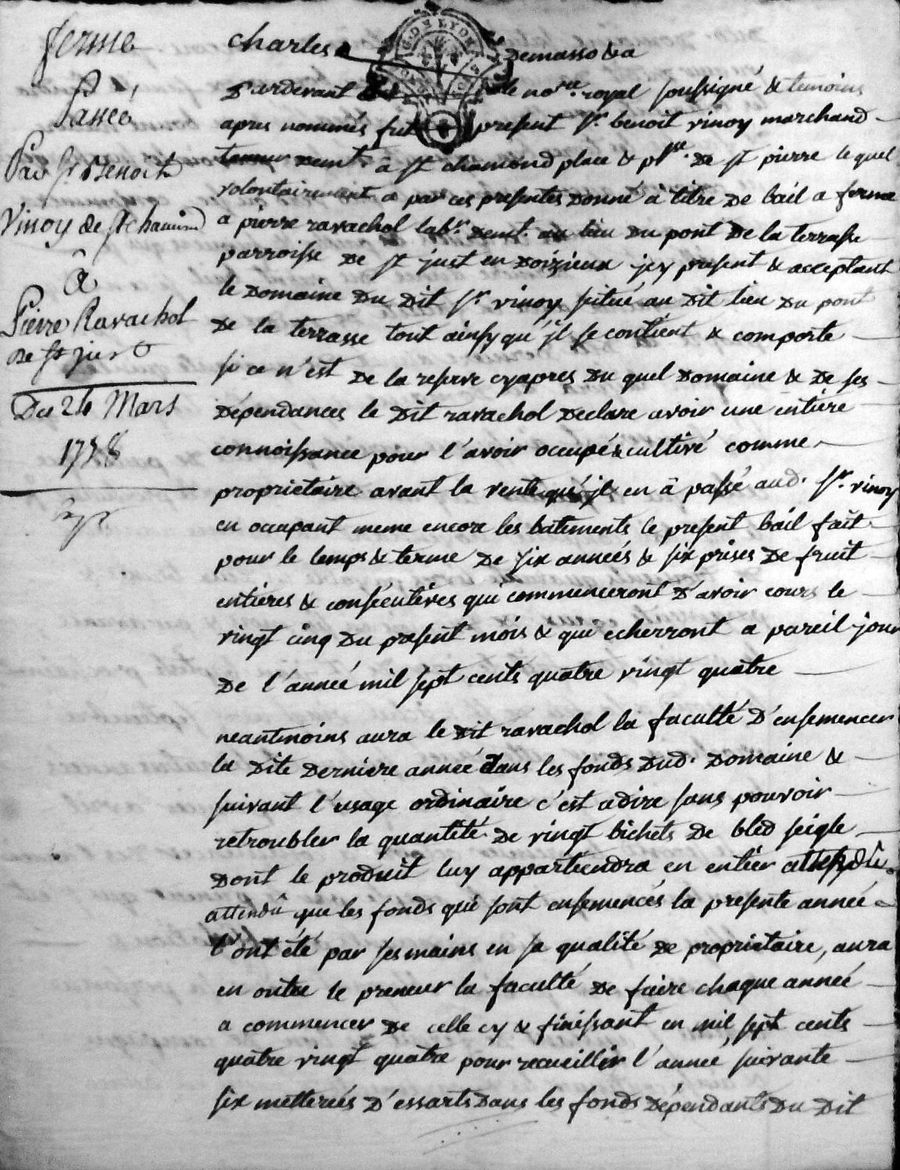 ferme
Passéé
Par Sr. Benoit
Vinoy de St chamond
â
Pierre Ravachol
de St just
Du 24 Mars
1778
charles Demasso &a
G. DE LYON
Pardevant le nore. royal soussigné & temoins
apres nommés fut present Sr. benoit vinoy marchand
demt. â St chamond place & psse. de St pierre lequel
volontairement a par ces presentes donné â titre de bail a ferme
a pierre ravachol labr. demt. au lieu du pont de la terrasse
parroisse de St just en doizieux jcy present & acceptant
le domaine du dit Sr. vinoy situé au dit lieu du pont
de la terrasse tout ainsy qu'jl se contient & comporte
si ce n'est de la reserve cyapres du quel domaine & de ses
dépendances le dit ravachol declare avoir une entiere
connoissance pour l'avoir occupé & cultivé comme
proprietaire avant la vente qu'jl en â passé aud. Sr. vinoy
en occupant meme encore les bâtements le present bail fait
pour le temps & terme de six années & six prises de fruit
entieres & consécutives qui commenceront d'avoir cours le
vingt cinq du present mois & qui echerront a pareil jour
de l'année mil sept cents quatre vingt quatre
neantmoins aura le dit ravachol la faculté d'ensemencer
la dite derniere année dans les fonds dud. domaine &
suivant l'usage ordinaire c'est adire sans pouvoir
retroubler la quantité de vingt bichets de bled seigle
dont le produit luy appartiendra en entier
attendû que les fonds qui sont ensemencés la presente année
l'ont été par ses mains en sa qualité de proprietaire, aura
en outre le preneur la faculté de faire chaque année
a commencer de celle cy & finissant en mil sept cents
quatre vingt quatre pour recueillir l'année suivante
six metterées d'essarts dans les fonds dépendants du dit